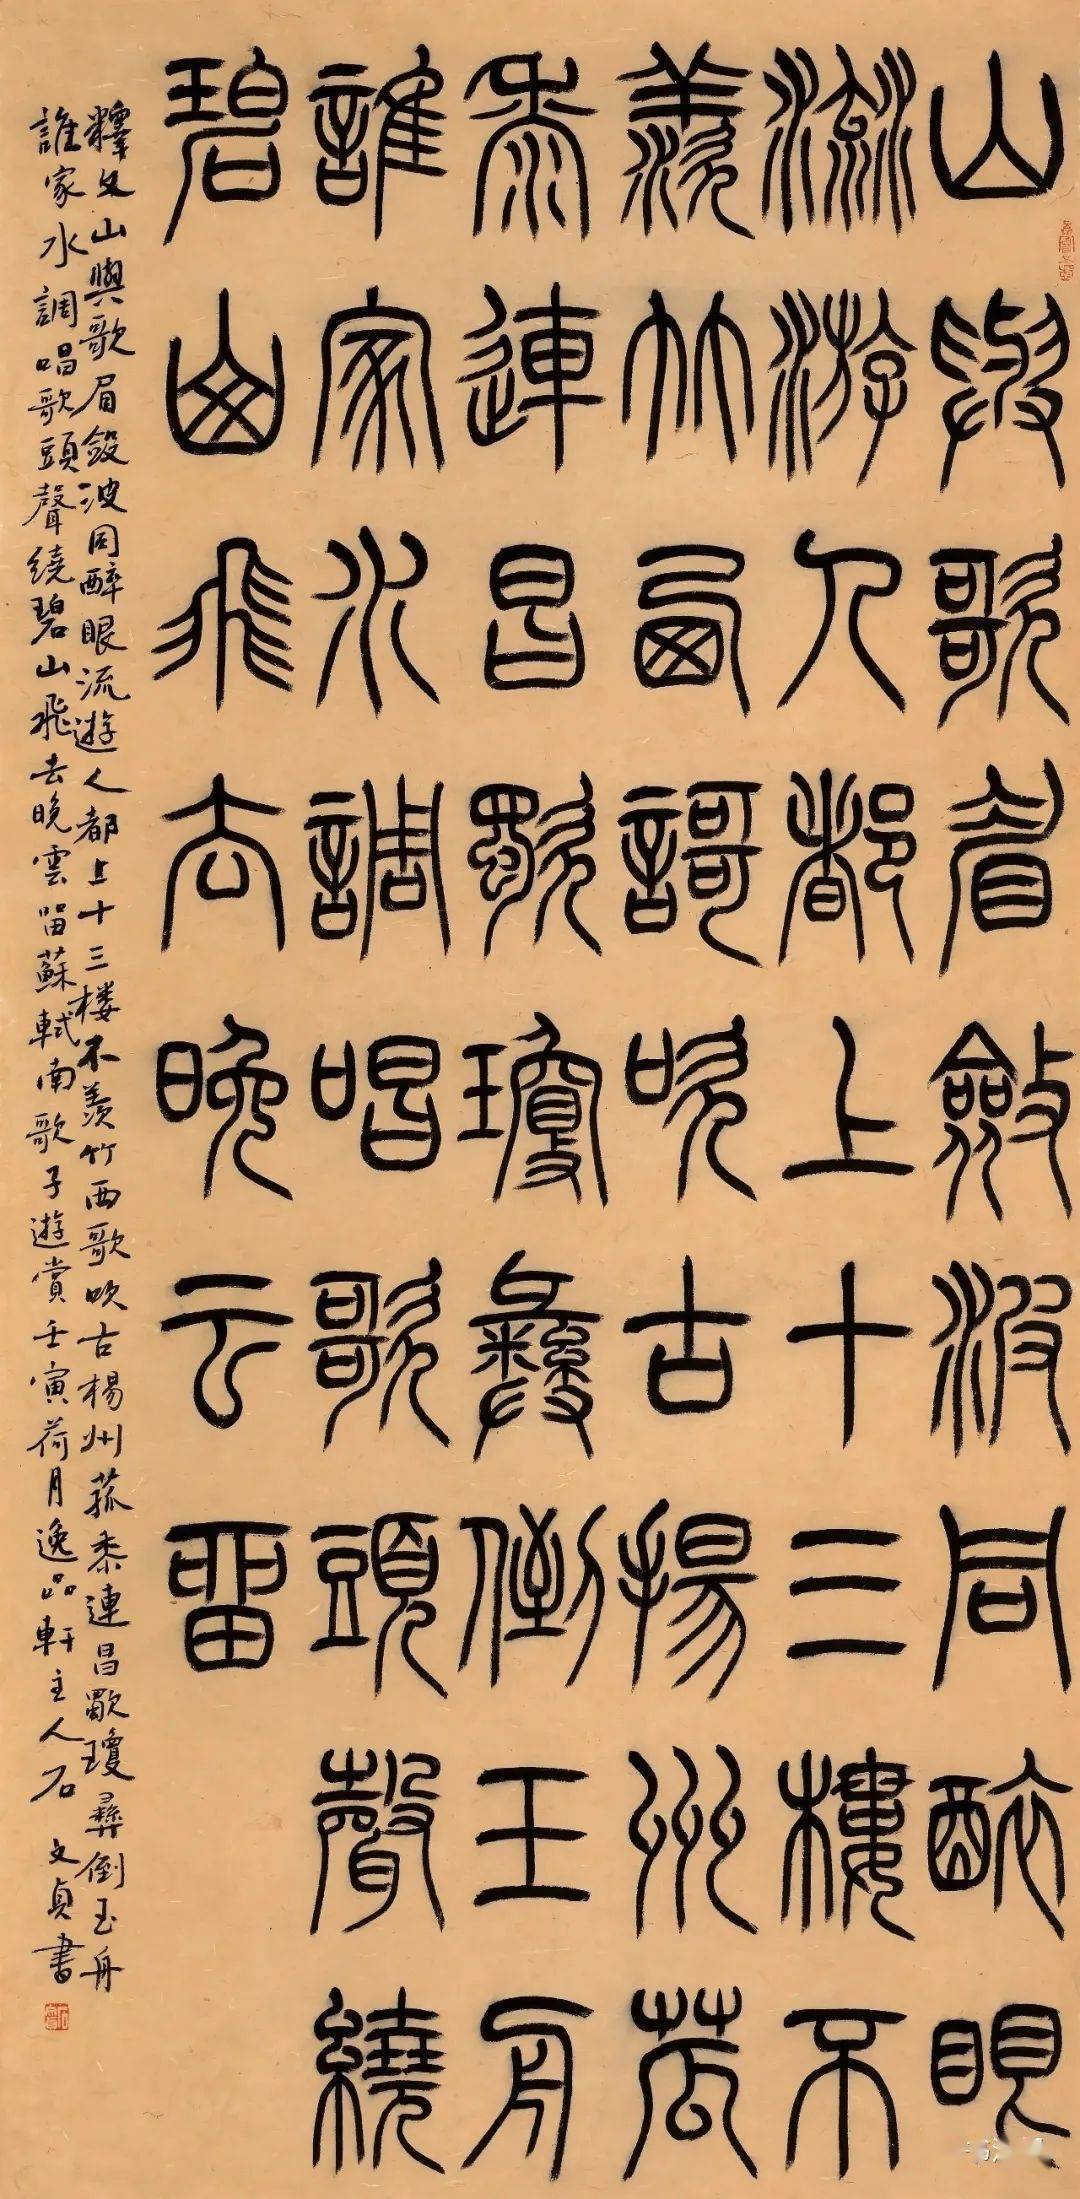 山與歌眉斂波同醉眼
流游人都上十三樓不
羨竹西謌吹古揚州菰
黍連昌歜瓊彝倒玉舟
誰家水調唱歌頭聲繞
碧山飛去晚云留
釋文山與歌眉斂波同醉眼流遊人都上十三楼不羨竹西歌吹古楊州菰黍連昌歜瓊彝倒玉舟
誰家水調唱歌頭聲繞碧山飛去晚雲留蘇軾南歌子遊賞壬寅荷月逸品軒主人石文貞書